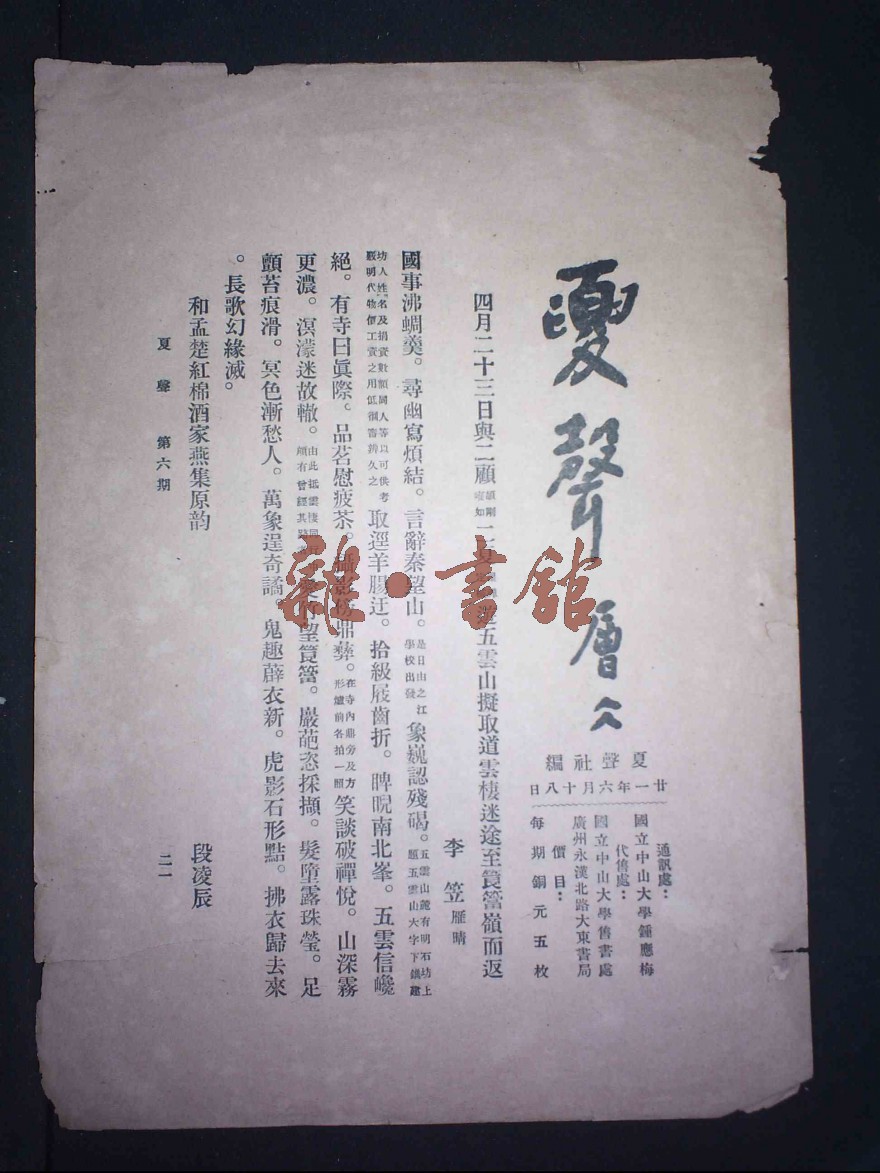 夏聲
層㐅
夏聲社編
廿一年六月十八日
通訊處：
國立中山大學鍾應梅
代售處：
國立中山大學售書處
廣州永漢北路大東書局
價目：
每期銅元五枚
四月二十三日與二顧頡剛 二 遊五雲山擬取道雲棲迷途至筤簹嶺而返
李笠雁晴
國事沸蜩羹。尋幽寫煩結。言辭秦望山。是日由之江學校出發 象巍認殘碣。五雲山麓有明石坊上題五雲山大字下鐫建
坊人姓名及捐資數額同人等以可供考覈明代物價工資之用低徊審辨久之 取逕羊腸迂。拾級屐齒折。睥睨南北峯。五雲信巉
絕。有寺曰眞際。品茗慰疲苶。攝影傍鼎彝。在寺內鼎旁及方形爐前各拍一照 笑談破禪悅。山深霧
更濃。溟濛迷故轍。由此抵雲棲 頗有曾經其 望筤簹。巖葩恣採擷。髮墮露珠瑩。足
顫苔痕滑。冥色漸愁人。萬象逞奇譎。鬼趣薜衣新。虎影石形點。拂衣歸去來
。長歌幻緣滅。
和孟楚紅棉酒家燕集原韵
段凌辰
夏聲 第六期
二一
雜·書館